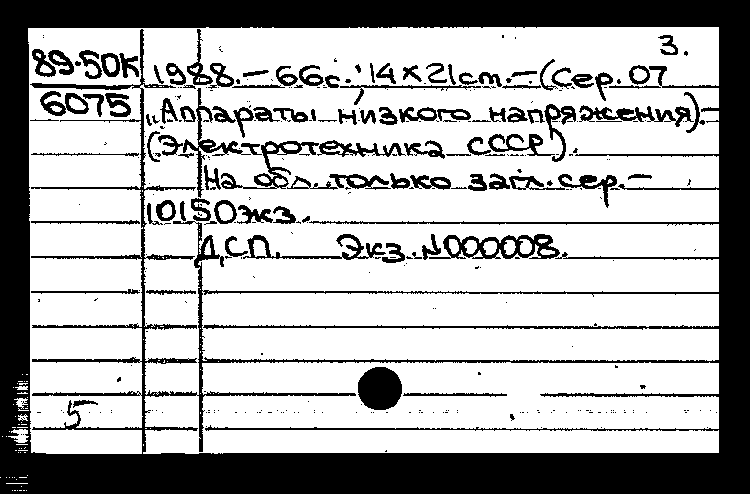 3.
89-50К 1988.— 66с.; 14×21см.— (Сер. 07
6075 „Аппараты низкого напряжения).—
(Электротехника СССР).
На обл. только загл. сер.—
10150экз.
ДСП. Экз. №000008.
5